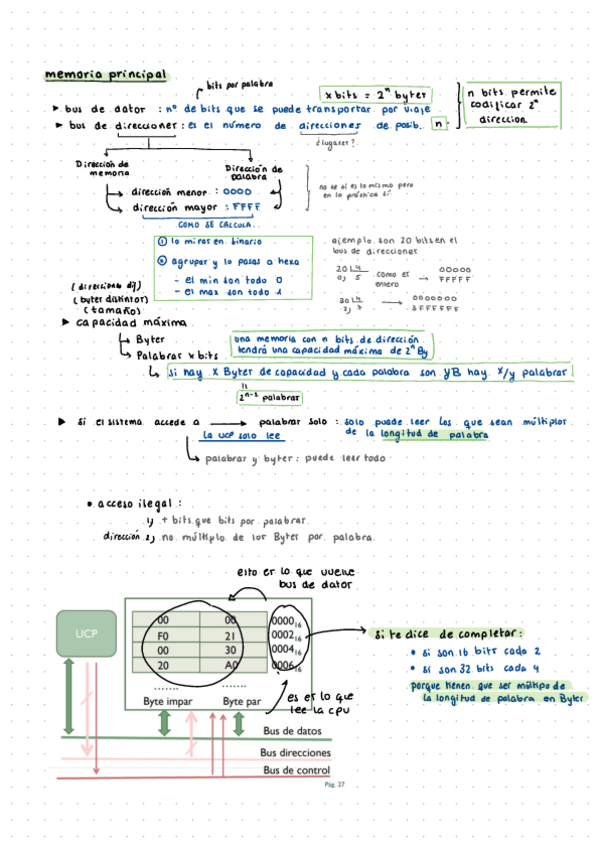 memoria principal
bits por palabra
x bits = 2^n byter
n bits permite
codificar 2^n
direccion
▸ bus de dator : nº de bits que se puede transportar por viaje
▸ bus de direccioner : es el número de direcciones de posib. n
¿lugares?
Dirección de
memoria
Dirección de
palabra
→ dirección menor : 0000
→ dirección mayor : FFFF
no se si es lo mismo pero
en la práctica sí
COMO SE CALCULA
① lo miras en binario
② agrupar y lo pasas a hexa
- el min son todo 0
- el max son todo 1
ejemplo son 20 bits en el
bus de direcciones
20 | 4
0, 5
como es
entero
→ 00000
FFFFF
30 | 4
2, 7
→ 0000000
3FFFFFF
(direcciones dif)
(byter distintor)
(tamaño)
▸ capacidad máxima
↳ Byter
↳ Palabras x bits
una memoria con n bits de dirección
tendrá una capacidad máxima de 2^n By
↳ si hay x Byter de capacidad y cada palabra son yB hay x/y palabrar
2^n-1 palabrar
▸ si el sistema accede a → palabrar solo : solo puede leer las que sean múltiplor
la UCP solo lee
de la longitud de palabra
↳ palabrar y byter : puede leer todo
• acceso ilegal :
1) + bits que bits por palabrar
dirección 2) no múltiplo de lor Byter por palabra
esto er lo que vuelve
bus de dator
UCP
00 00 0000₁₆
F0 21 0002₁₆
00 30 0004₁₆
20 A0 0006₁₆
........ ........
Byte impar Byte par
es er lo que
lee la cpu
si te dice de completar :
• si son 16 bits cada 2
• si son 32 bits cada 4
porque tienen que ser múltipo de
la longitud de palabra en Byter
Bus de datos
Bus direcciones
Bus de control
Pág. 27